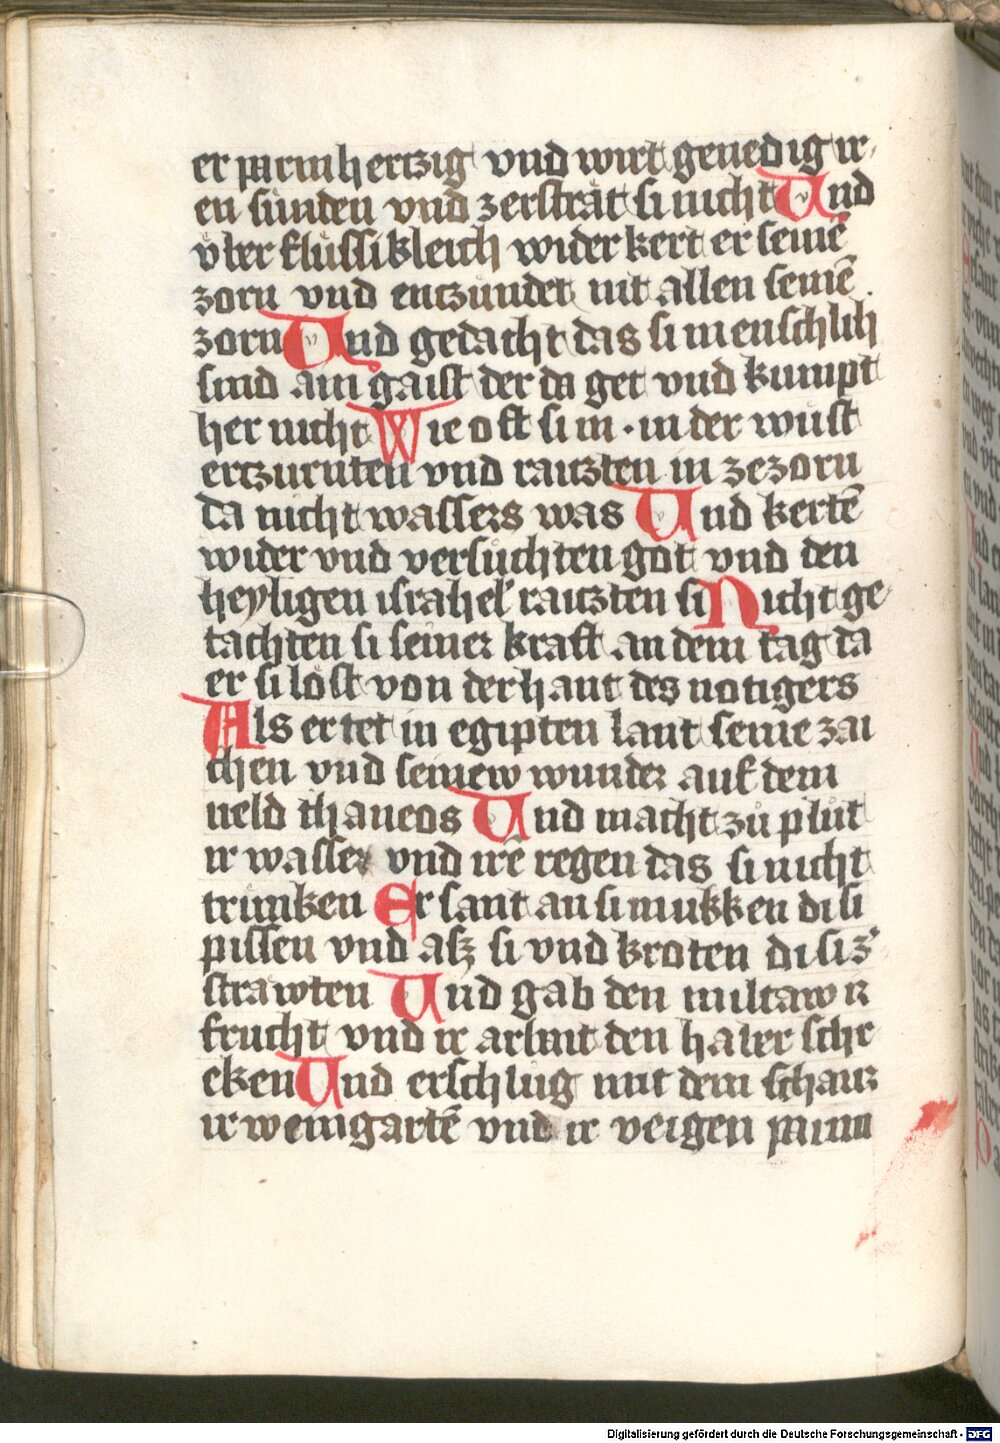 er parmhertzig vnd wirt genedig ir⸗
en sünden vnd zersträt si nicht Vnd
vber flüssikleich wider kert er seinē
zorn vnd entzündet nit allen seinē
zorn Vnd gedacht das si menschlih
sind ain gaist der da get vnd kumpt
her nicht Wie oft si in · in der wüst
ertzurnten vnd raitzten in ze zorn
da nicht wassers was Vnd kertē
wider vnd versuchten got vnd den
heyligen israhel raitzten si Nicht ge
tachten si seiner kraft an dem tag da
er si löst von der hant des notigers
Als er tet in egipten lant seine zai
chen vnd seinew wunder auf dem
ueld thaneos Vnd macht zů plůt
ir wasser vnd irē regen das si nicht
trunken Er sant an si mukken di si
pissen vnd asz si vnd kroten di si z
strawten Vnd gab den miltaw ir
frucht vnd ir arbait den haber schr
eken Vnd erschlug mit dem schaur
ir weingartē vnd ir veigen paum
Digitalisierung gefördert durch die Deutsche Forschungsgemeinschaft - DFG